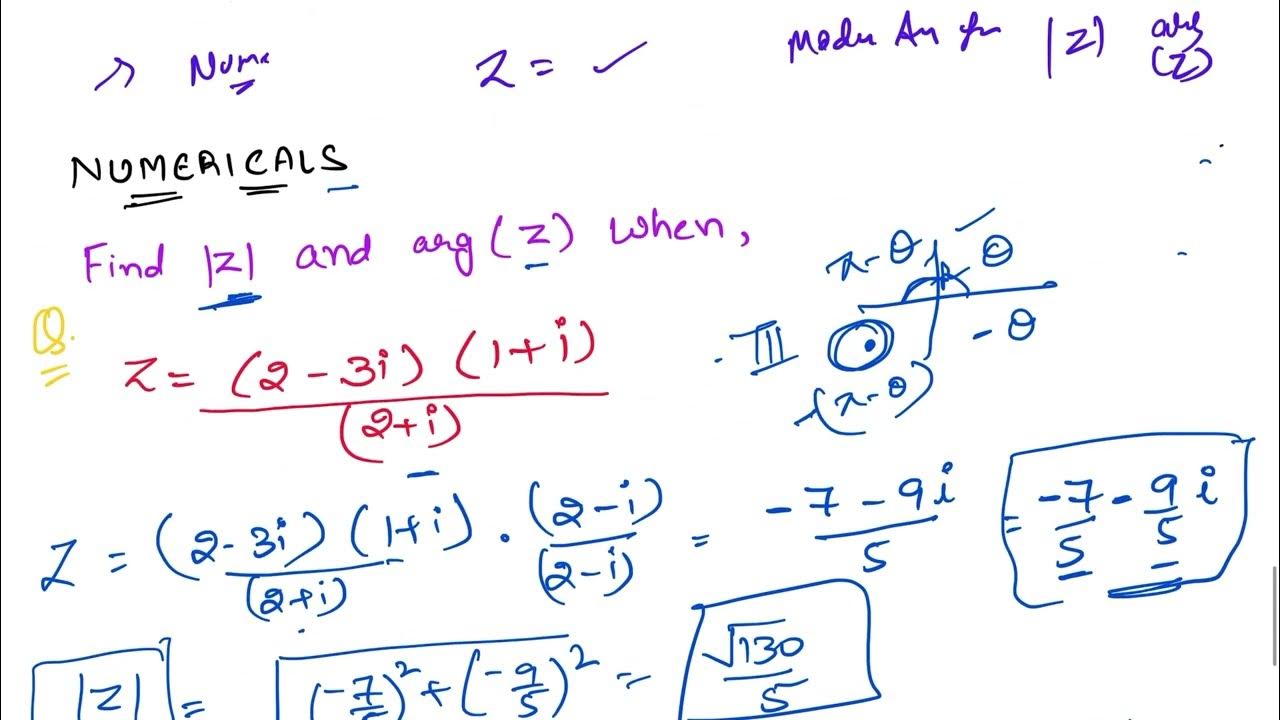 → Nume Z = ✓ |Z| arg (Z)
NUMERICALS
Find |Z| and arg(Z) when,
π-θ θ
Q. Z = (2-3i)(1+i)/(2+i) III -(π-θ) -θ
Z = (2-3i)(1+i)/(2+i) · (2-i)/(2-i) = -7-9i/5 = -7/5 - 9/5 i
|Z| = √(-7/5)² + (-9/5)² = √130/5